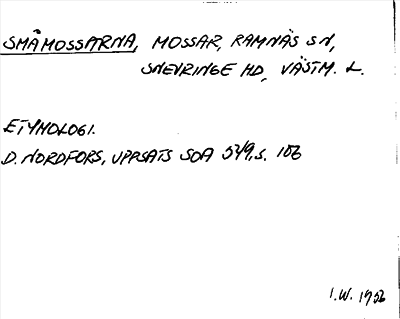 SMÅMOSSARNA, MOSSAR, RAMNÄS SN,
SNEVRINGE HD, VÄSTM. L.
ETYMOLOGI.
D. NORDFORS, UPPSATS SOA 549, s. 106
I.W. 1956